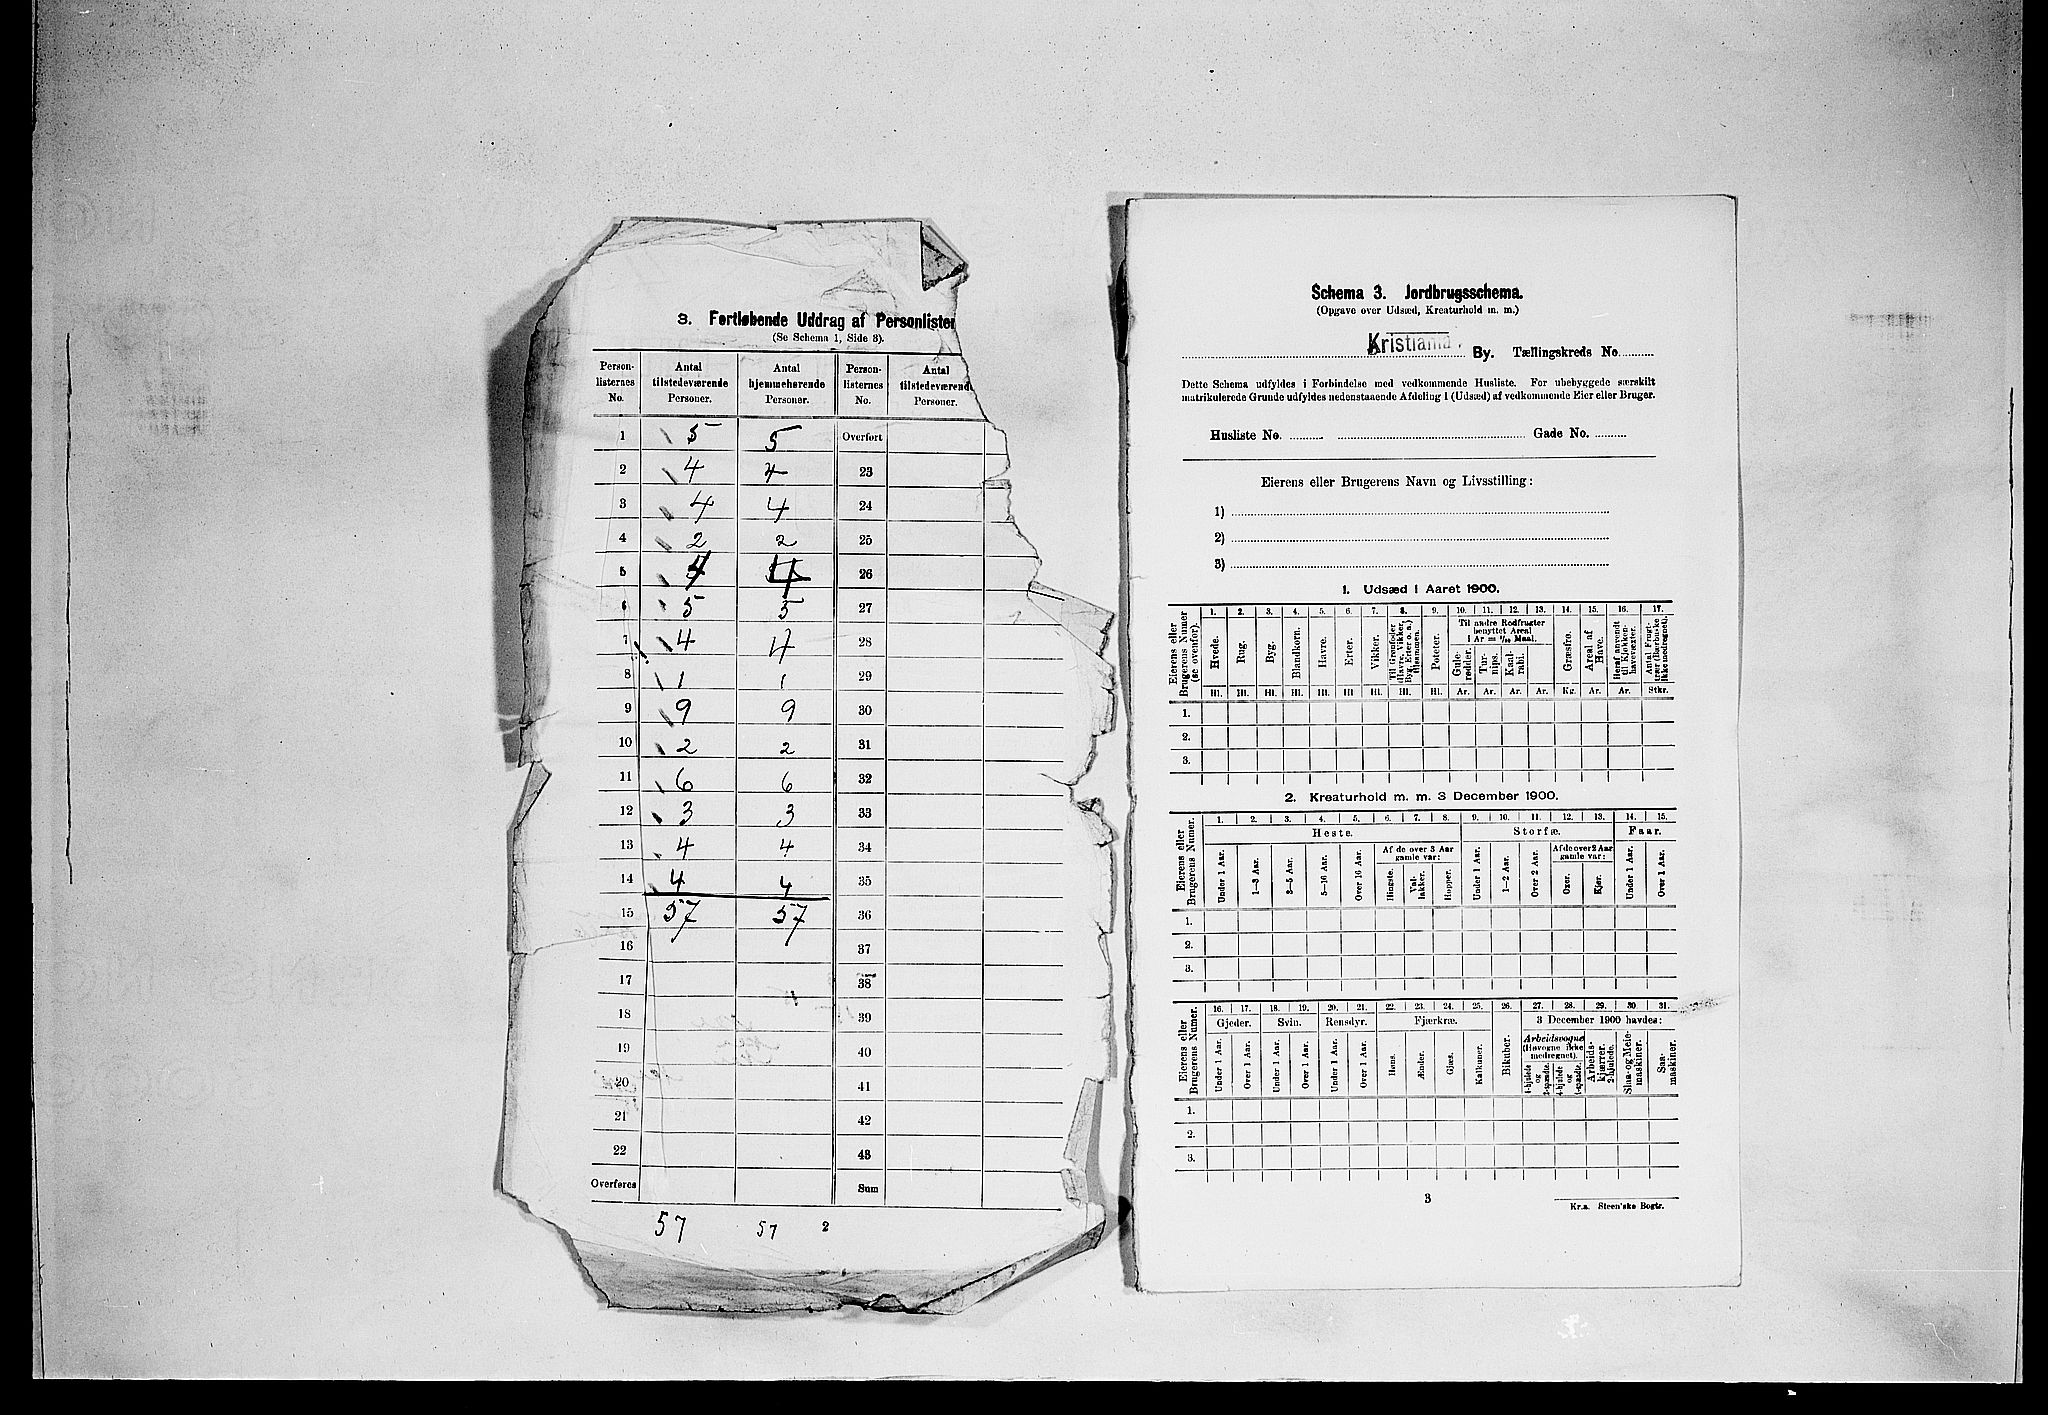 3. Fortløbende Uddrag af Personlister
(Se Schema 1, Side 3).
Person-listernes No. | Antal tilstedeværende Personer. | Antal hjemmehørende Personer. | Person-listernes No. | Antal tilstedeværende Personer.
1 5 5 Overført
2 4 4 23
3 4 4 24
4 2 2 25
5 4 4 26
6 5 5 27
7 4 4 28
8 1 1 29
9 9 9 30
10 2 2 31
11 6 6 32
12 3 3 33
13 4 4 34
14 4 4 35
15 57 57 36
16 37
17 38
18 39
19 40
20 41
21 42
22 43
Overføres Sum
57 57 2
Schema 3. Jordbrugsschema.
(Opgave over Udsæd, Kreaturhold m. m.)
Kristiania By. Tællingskreds No.
Dette Schema udfyldes i Forbindelse med vedkommende Husliste. For ubebyggede særskilt
matrikulerede Grunde udfyldes nedenstaaende Afdeling 1 (Udsæd) af vedkommende Eier eller Bruger.
Husliste No. Gade No.
Eierens eller Brugerens Navn og Livsstilling:
1)
2)
3)
1. Udsæd i Aaret 1900.
Eierens eller Brugerens Numer (se ovenfor).
1. 2. 3. 4. 5. 6. 7. 8. 9. 10. 11. 12. 13. 14. 15. 16. 17.
Hvede. Rug. Byg. Blandkorn. Havre. Erter. Vikker. Til Grønfoder (Havre, Vikker, Byg, Erter o. a.) tilsammen. Poteter.
Til andre Rodfrugter benyttet Areal i Ar = 1/10 Maal.
Gulerødder. Turnips. Kaalrabi. Græsfrø. Areal af Have. Heraf anvendt til Kjøkkenhavevæxter. Antal Frugttrær (Bærbuske ikke medregnet).
Hl. Hl. Hl. Hl. Hl. Hl Hl. Hl. Hl. Ar. Ar. Ar. Ar. Kg. Ar. Ar. Stkr.
1.
2.
3.
2. Kreaturhold m. m. 3 December 1900.
Eierens eller Brugerens Numer.
1. 2. 3. 4. 5. 6. 7. 8. 9. 10. 11. 12. 13. 14. 15.
Heste. Storfæ. Faar.
Af de over 3 Aar gamle var: Af de over 2 Aar gamle var:
Under 1 Aar. 1—3 Aar. 3—5 Aar. 5—16 Aar. Over 16 Aar. Hingste. Vallakker. Hopper. Under 1 Aar. 1—2 Aar. Over 2 Aar. Oxer. Kjør. Under 1 Aar. Over 1 Aar.
1.
2.
3.
Eierens eller Brugerens Numer.
16. 17. 18. 19. 20. 21. 22. 23. 24. 25. 26. 27. 28. 29. 30 31.
Gjeder. Svin. Rensdyr. Fjærkræ. Bikuber. 3 December 1900 havdes:
Arbeidsvogne (Høvogne ikke medregnet).
Under 1 Aar. Over 1 Aar. Under 1 Aar. Over 1 Aar. Under 1 Aar. Over 1 Aar. Høns. Ænder. Gjæs. Kalkuner. 4-hjulede og 2-spændte. 4-hjulede og 1-spændte. Arbeidskjærrer. 2-hjulede. Slaa- og Meiemaskiner. Saamaskiner.
1.
2.
3.
3
Kr.a. Steen'ske Bogtr.